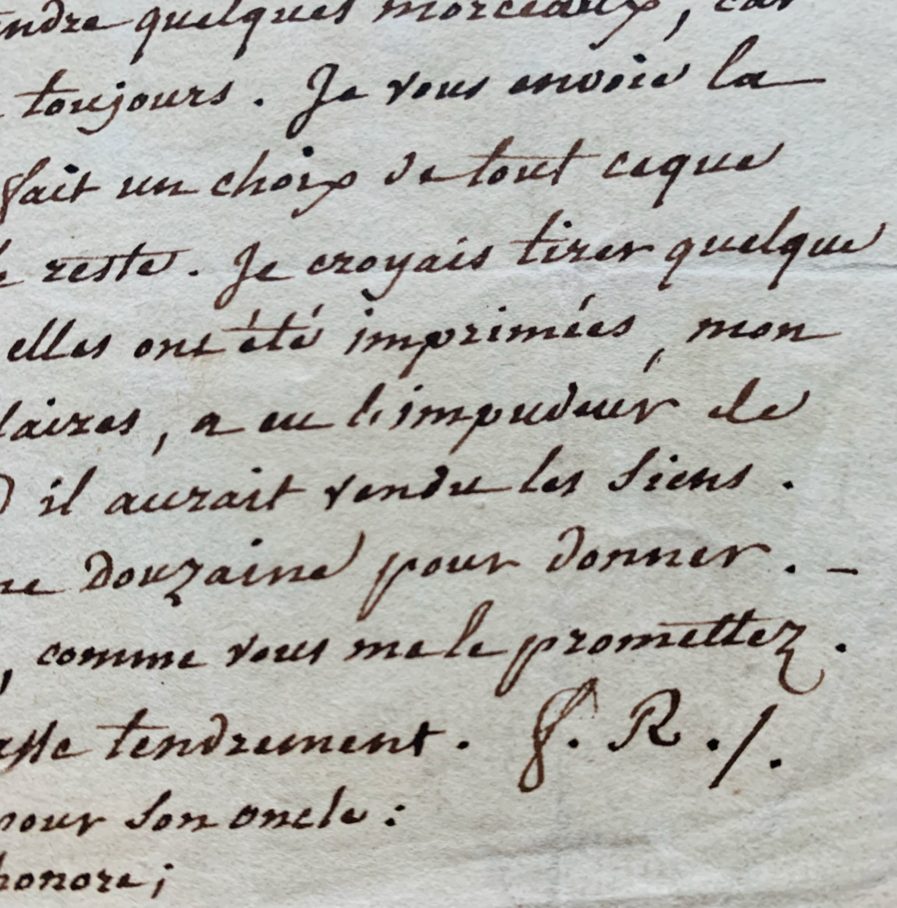 quelques morceaux, car
toujours. Je vous envoie la
fait un choix de tout ceque
reste. Je croyais tirer quelque
elles ont été imprimées, mon
, a eu l'impudeur de
il aurait vendu les siens.
douzaine pour donner. -
, comme vous me le promettez.
tendrement. f. R./.
pour son oncle:
honore;